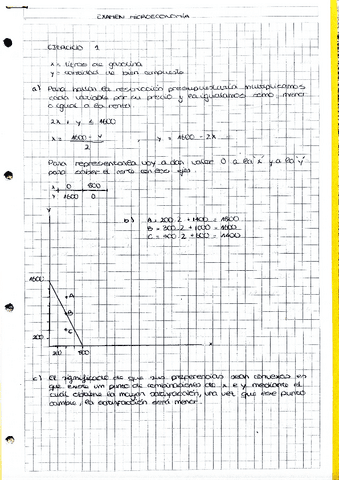 EXAMEN MICROECONOMÍA
EJERCICIO 1
x = litros de gasolina
y = cantidad de bien compuesto
a) Para hallar la restricción presupuestaria multiplicamos
cada variable por su precio y la igualamos como menor
o igual a la renta.
2x + y ≤ 1600
x = 1600 - y / 2 , y = 1600 - 2x
Para representarla voy a dar valor 0 a la 'x' y a la 'y'
para saber el corte con los ejes
x 0 800
y 1600 0
b) A = 200·2 + 1400 = 1800
B = 300·2 + 1000 = 1600
C = 2 + 600 =
y
1600
A
B
C
200
200 800 x
c) El significado de que sus preferencias sean convexas es
que existe un punto de combinaciones de x e y mediante el
cual obtiene la mayor satisfacción, una vez que ese punto
cambie, la satisfacción será menor.